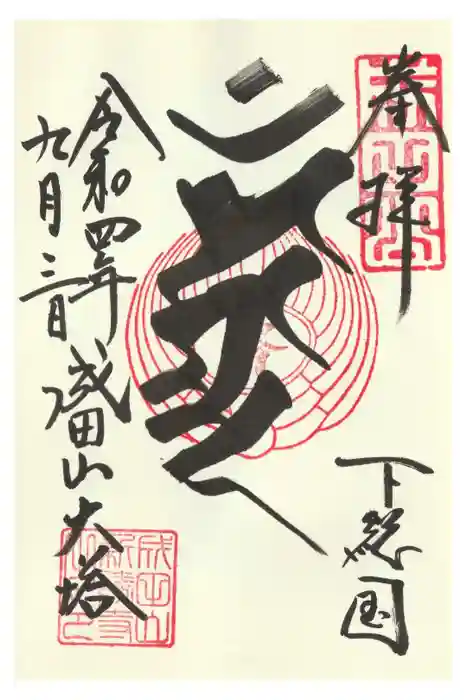 奉拝
下総国
令和四年
九月三日
成田山大塔
成田山
新勝寺